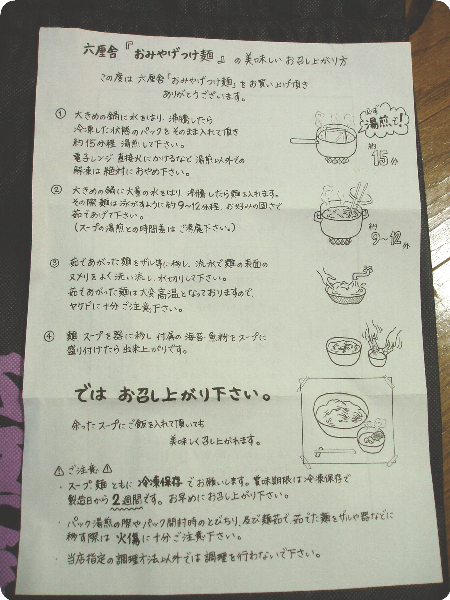 六厘舎『おみやげつけ麺』の美味しいお召し上がり方
この度は 六厘舎「おみやげつけ麺」をお買い上げ頂き
ありがとうございます。
① 大きめの鍋に水をはり、沸騰したら
冷凍した状態のパックをそのまま入れて頂き
約15分程 湯煎して下さい。
電子レンジ 直接火にかけるなど 湯煎以外での
解凍は 絶対に おやめ下さい。
必ず
湯煎で!
約
15分
② 大きめの鍋に大量の水をはり、沸騰したら麺を入れます。
その際 麺は泳がすように 約9〜12分程、お好みの固さで
茹であげて下さい。
(スープの湯煎との時間差はご考慮下さい。)
約
9〜12分
③ 茹であがった麺をザル等に移し、流水で麺の表面の
ヌメリをよく洗い流し、水切りして下さい。
茹であがった麺は大変高温となっておりますので、
ヤケドに十分ご注意下さい。
④ 麺 スープを器に移し 付属の海苔・魚粉をスープに
盛り付けたら出来上がりです。
では お召し上がり下さい。
余ったスープにご飯を入れて頂いても
美味しく召し上がれます。
⚠ ご注意 ⚠
・スープ、麺 ともに 冷凍保存 でお願いします。賞味期限は冷凍保存で
製造日から 2週間 です。お早めにお召し上がり下さい。
・パック湯煎の際やパック開封時のとびちり、及び麺茹で、茹でた麺をザルや器などに
移す際は 火傷 に十分ご注意下さい。
・当店指定の調理方法以外では調理を行わないで下さい。